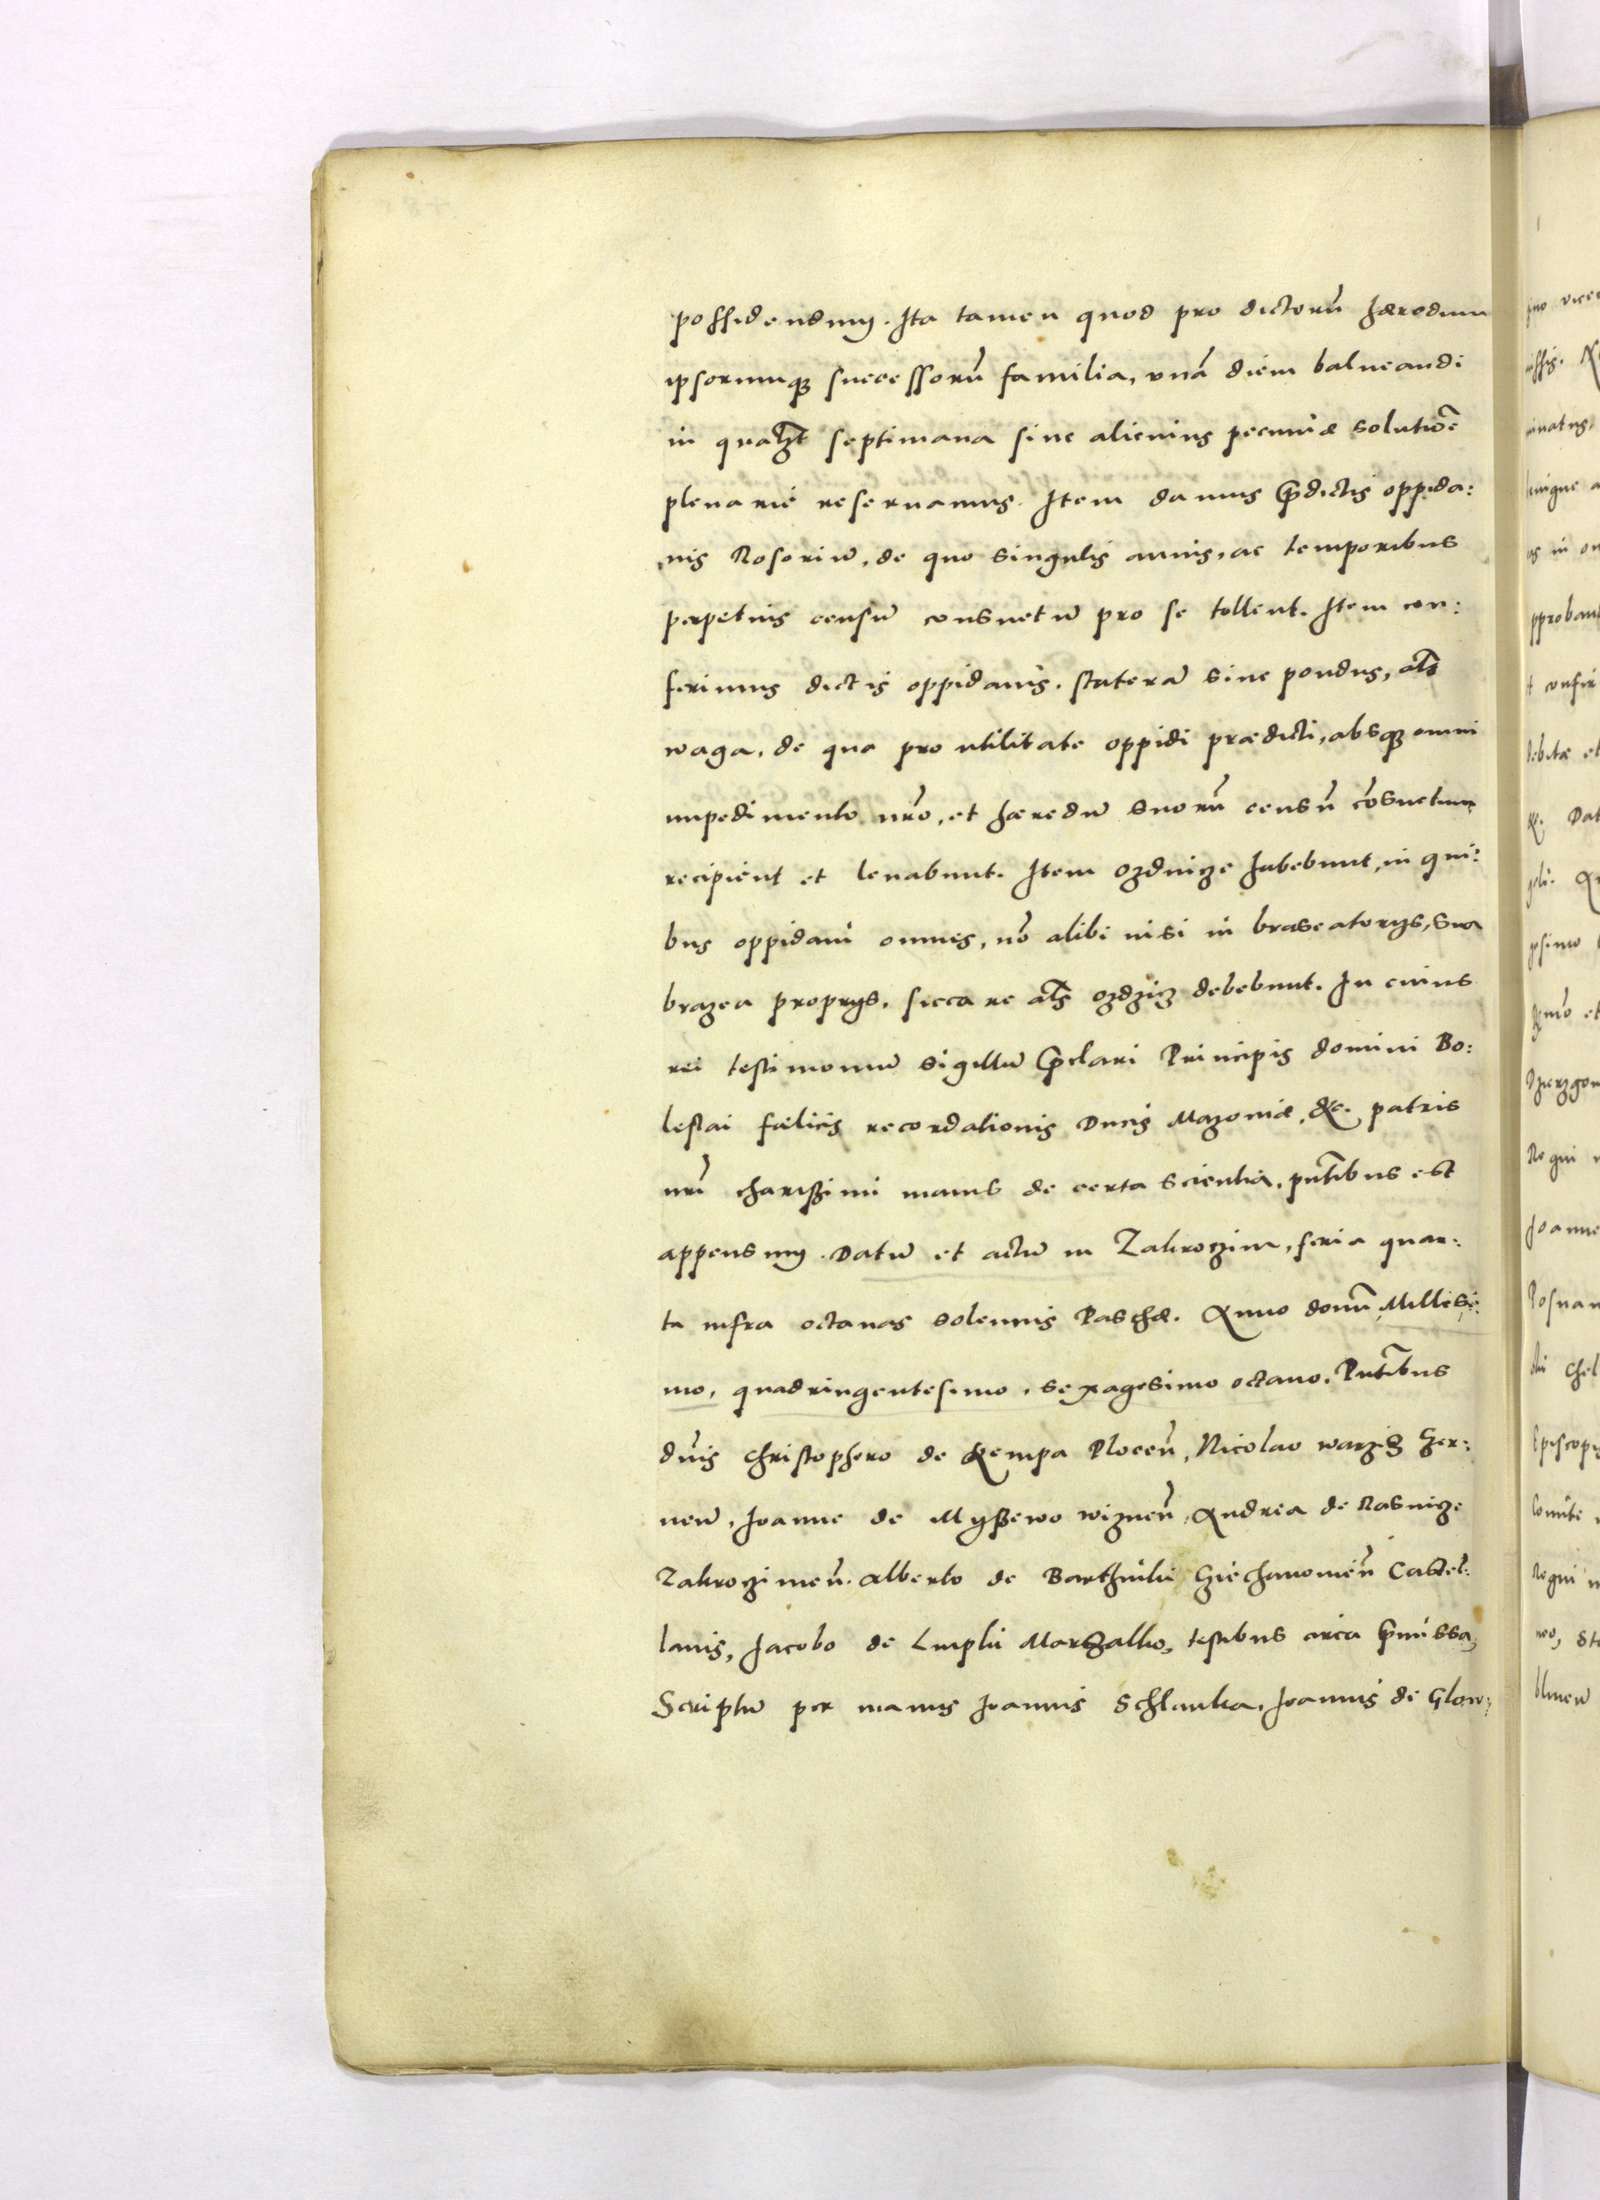 possidendum. Ita tamen quod pro dictorũ hæredum
ipsorumqꝫ successorũ familia, vnã diem balneandi
in qualꝫt septimana sine alicuius pecuniæ solutiõe
plenariè reseruamus. Item damus p̃dictis oppida:
nis Rasoriũ, de quo singulis annis, ac temporibus
perpetuis censũ consuetũ pro se tollent. Item con:
ferimus dictis oppidanis, staterã siue pondus, als̃
waga, de qua pro utilitate oppidi prædicti, absqꝫ omni
impedimento nr̃o, et hæredũ suorũ censũ cõsuetum
recipient et leuabunt. Item ozdnicze habebunt, in qui:
bus oppidani omnes, nõ alibi nisi in braseatorijs, sua
brazea proprijs, siccare als̃ ozdzicz debebunt. In cuius
rei testimoniũ sigillũ p̃clari Principis domini Bo:
leslai fœlicis recordationis Ducis Mazouiæ, &c. patris
nr̃i charissimi maius de certa scientia, pñtibus est
appensum. Datũ et actũ in Zakroczim, feria quar:
ta infra octauas solennis Paschæ. Anno domi͂ Millesi:
mo, quadringentesimo, sexagesimo octauo. Pñtibus
dñis Christophoro de Kempa Plocen͂, Nicolao
nen͂, Joanne de Myssewo wiznen͂, Andrea de Rasnicze
Zakroczimen͂. Alberto de Barthniki Cziechanouien͂ Castel:
lanis, Jacobo de Marszalko, testibus circa p̃missa,
Scriptũ per manus Joannis Joannis de Glow: